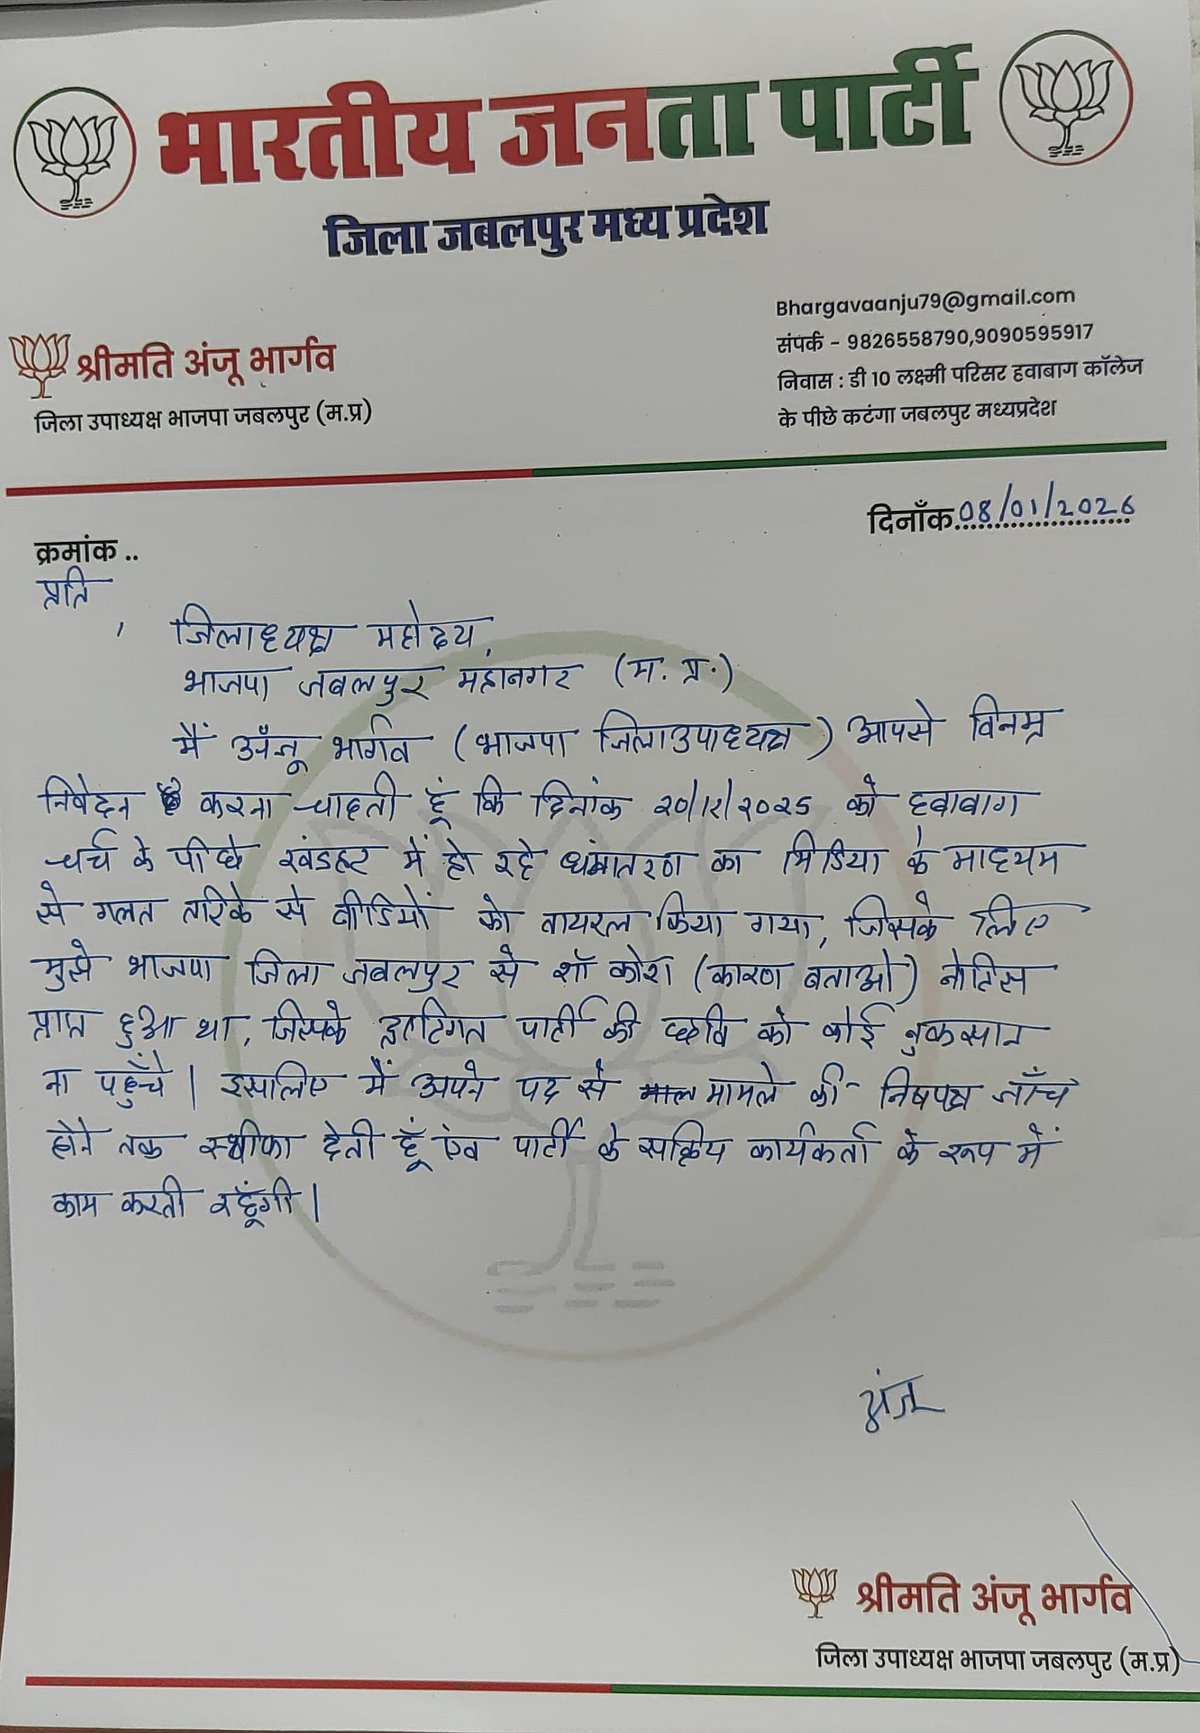 भारतीय जनता पार्टी
जिला जबलपुर मध्य प्रदेश
Bhargavaanju79@gmail.com
संपर्क - 9826558790,9090595917
निवास : डी 10 लक्ष्मी परिसर हवाबाग कॉलेज
के पीछे कटंगा जबलपुर मध्यप्रदेश
श्रीमति अंजू भार्गव
जिला उपाध्यक्ष भाजपा जबलपुर (म.प्र)
दिनाँक 08/01/2026
क्रमांक ..
प्रति
, जिलाध्यक्ष महोदय,
भाजपा जबलपुर महानगर (म. प्र.)
मैं अँजू भार्गव (भाजपा जिलाउपाध्यक्ष) आपसे विनम्र
निवेदन करना चाहती हूं कि दिनांक २०/१२/२०२५ को हवाबाग
चर्च के पीछे खंडहर में हो रहे धंमातरण का मिडिया के माध्यम
से गलत तारिके से वीडियों को वायरल किया गया, जिसके लिए
मुझे भाजपा जिला जबलपुर से शॉ कोश (कारण बताओ) नोटिस
प्राप्त हुआ था, जिसके दृष्टिगत पार्टी की छवि को कोई नुकसान
ना पहुँचे | इसलिए मैं अपने पद से मामले की निषपक्ष जाँच
होने तक स्थीफा देती हूँ एंव पार्टी के सक्रिय कार्यकर्ता के रूप में
काम करती रहूँगी |
अंजू
श्रीमति अंजू भार्गव
जिला उपाध्यक्ष भाजपा जबलपुर (म.प्र)